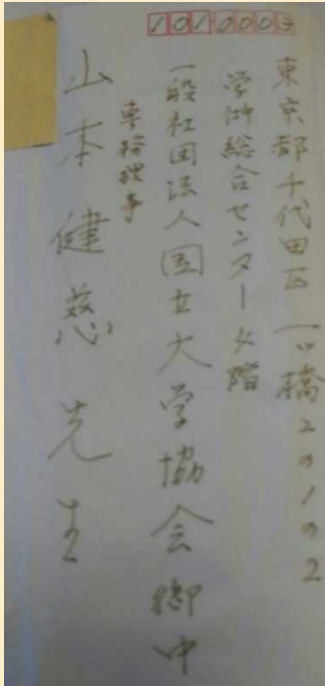 101-0003
東京都千代田区一ツ橋2の1の2
学術総合センター4階
一般社団法人国立大学協会御中
専務理事
山本健慈先生